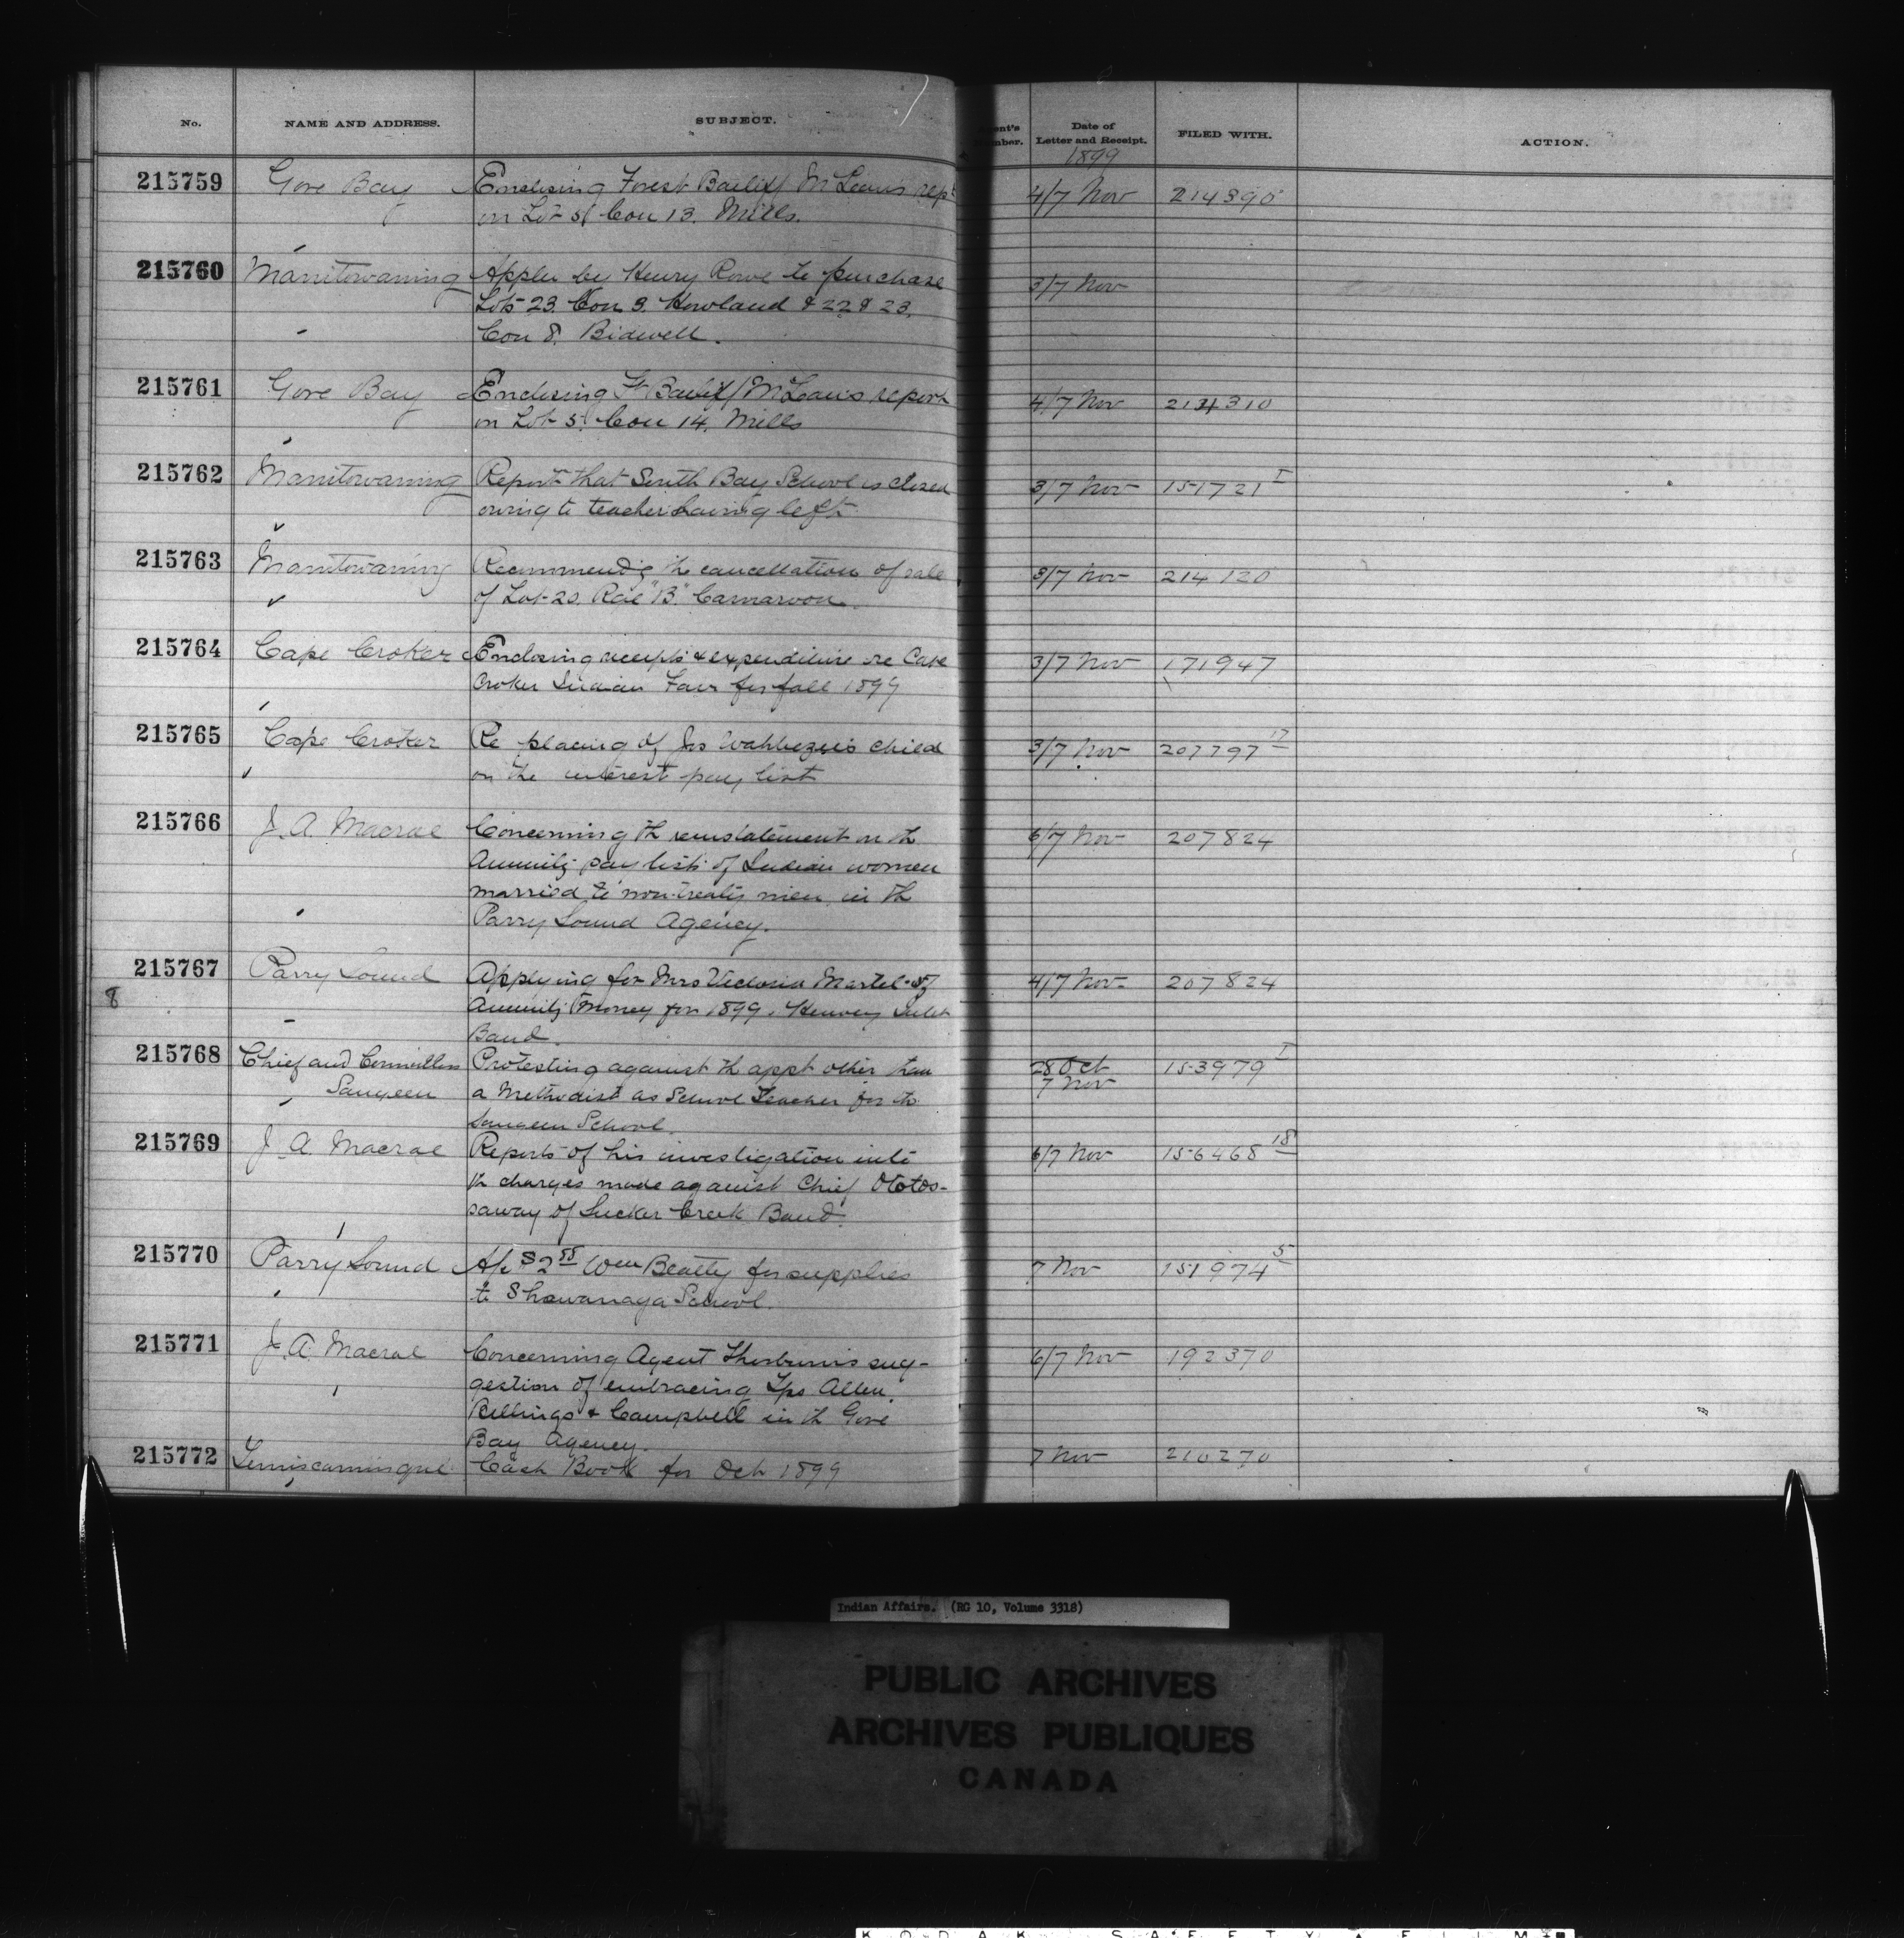 No. NAME AND ADDRESS. SUBJECT. Date of Letter and Receipt. FILED WITH. ACTION.
1899
215759 Gore Bay Enclosing Forest Bailiff McLean's rept 4/7 Nov 214390
on Lot 5 Con 13. Mills.
215760 Manitowaning Appln by Henry Rowe to purchase 3/7 Nov
Lots 23. Con 9. Howland & 22 & 23.
Con 8. Bidwell.
215761 Gore Bay Enclosing Ft Bailiff McLean's report 4/7 Nov
on Lot 5. Con 14. Mills
215762 Manitowaning Reports that South Bay School is closed 3/7 Nov 151721 I
owing to teacher having left
215763 Manitowaning Recommendg the cancellation of sale 3/7 Nov 214120
of Lot 20. Rge "B." Carnarvon.
215764 Cape Croker Enclosing receipts & expenditure re Cape 3/7 Nov 171947
Croker Indian Fair for fall 1899
215765 Cape Croker Re placing of Jos child 3/7 Nov 207797 17
on the interest pay list
215766 J. A. Macrae Concerning th reinstatement on th 6/7 Nov 207824
Annuity pay lists of Indian women
married to non-treaty men, in th
Parry Sound Agency.
215767 Parry Sound Applying for Mrs Victoria Martel's 4/7 Nov 207824
8 Annuity Money for 1899. Henvey Inlet
Band.
215768 Chief and Councillors Protesting against th appt other than 28 Oct 153979 I
Saugeen a Methodist as School Teacher for th 7 Nov
Saugeen School.
215769 J. A. Macrae Reports of his investigation into 6/7 Nov 156468 18
th charges made against Chief Ototos-
saway of Sucker Creek Band.
215770 Parry Sound A/c $2 55 Wm Beatty for supplies 7 Nov 151974 5
to Shawanaga School.
215771 J. A. Macrae Concerning Agent Thorburn's sug- 6/7 Nov 192370
gestion of embracing Tps Allen
Billings & Campbell in th Gore
Bay Agency.
215772 Temiscamingue Cash Book for Oct 1899 7 Nov 210270
Indian Affairs. (RG 10, Volume 3318)
PUBLIC ARCHIVES
ARCHIVES PUBLIQUES
CANADA
KODAK SAFETY FILM